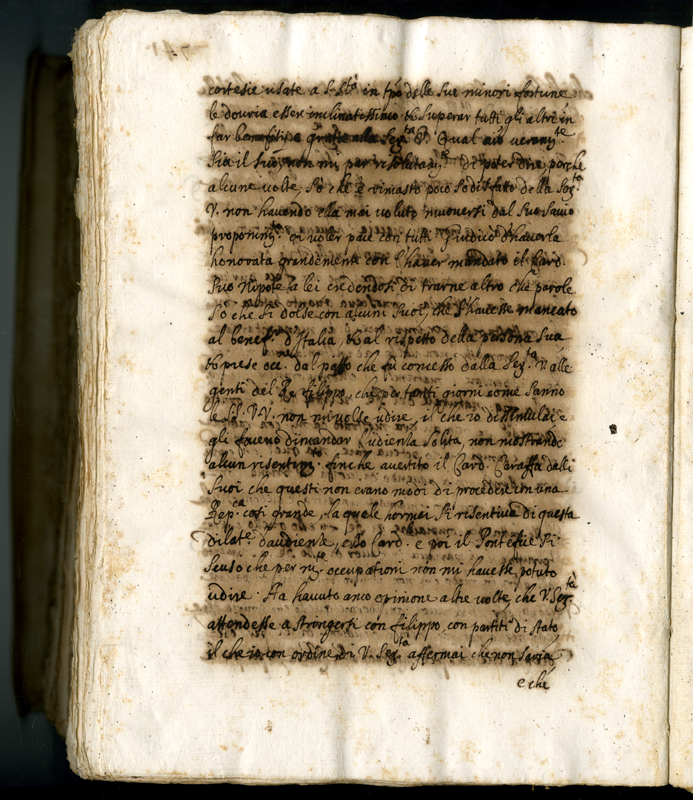 cortesie usate a S. Stà in tpo delle sue minori fortune
le dovria esser inclinatissimo & superar tutti gli altri in
far benefitii e gratie alla Sertà V. Qual aïo veramte
sia il suo, non mi par risolutamte di poter dire, perche
alcune volte, sò che è rimasto poco sodisfatto della Serta
V. non havendo ella mai voluto muoversi dal suo savio
proponimto di voler pace con tutti
honorata grandemente con l'haver mandato il Card.
suo Nipote à lei credendosi di trarne altro che parole
sò che si dolse con alcuni suoi, che s'havesse mancato
al benefo d'Italia, & al rispetto della persona sua
& prese occne dal passo che fu concesso dalla Serta V. alle
genti del Re Filippo, che per tanti giorni come sanno
le SS. VV. non mi volse udire, il che io dissimulai e
gli facevo dimandar l'udienza solita, non mostrando
alcun risentimto finche avertito il Card. Caraffa dalli
suoi che questi non erano modi di procedere in una
Repca così grande, la quale hormai si risentiva di questa
dilate d'audienze, esso Card. e poi il Pontefice si
scusò che per occupationi non mi havesse potuto
udire. Ha havuto anco opinione altre volte, che V. Serta
attendesse a strengersi con Filippo, con partiti di stato,
il che io con ordine di V. Serta affermai che non saria
e che